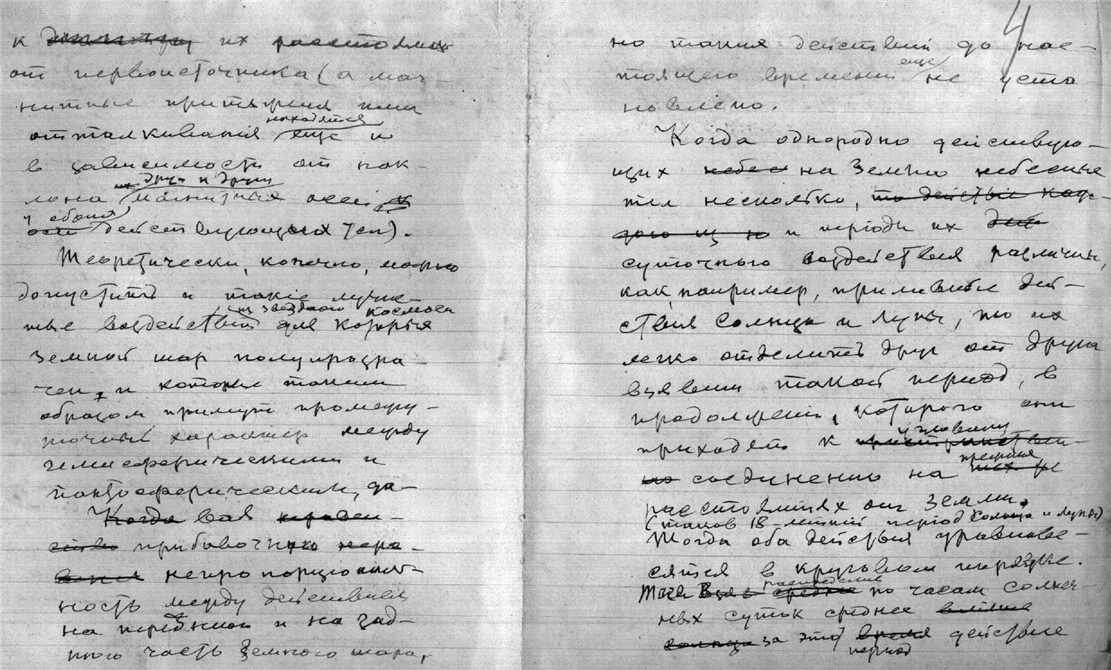 к их расстоянию
от первоисточника (а маг-
нитные притяжения или
отталкивания находятся еще и
в зависимости от нак-
лона друг к другу магнитных осей
действующих тел).
Теоретически, конечно, можно
допустить и такіе лучис-
тые воздействия из звездного космоса для которых
земной шар полупрозра-
чен, и которые таким
образом примут промежу-
точный характер между
гемисферическими и
пантосферическими, да-
Когда вся
прибавочную
непропорціональ-
ность между действием
на переднюю и на зад-
нюю часть Земного шара,
4
но такия действия до нас-
тоящего времени еще не уста
новлено.
Когда однородно действую-
щих на Землю небесных
тел несколько, то действие каж-
и періоды их
суточного воздействия различны,
как, например, приливные дей-
ствия Солнца и Луны, то их
легко отделить друг от друга
взявши такой период, в
продолжении, которого они
приходят к угловому
соединению на прежних
расстояниях от Земли.
(таков 18-летний період Солнца и Луны)
Тогда оба действия уравнове-
сятся в круговом порядке.
по часам солнеч
ных суток среднее
за этот період действие